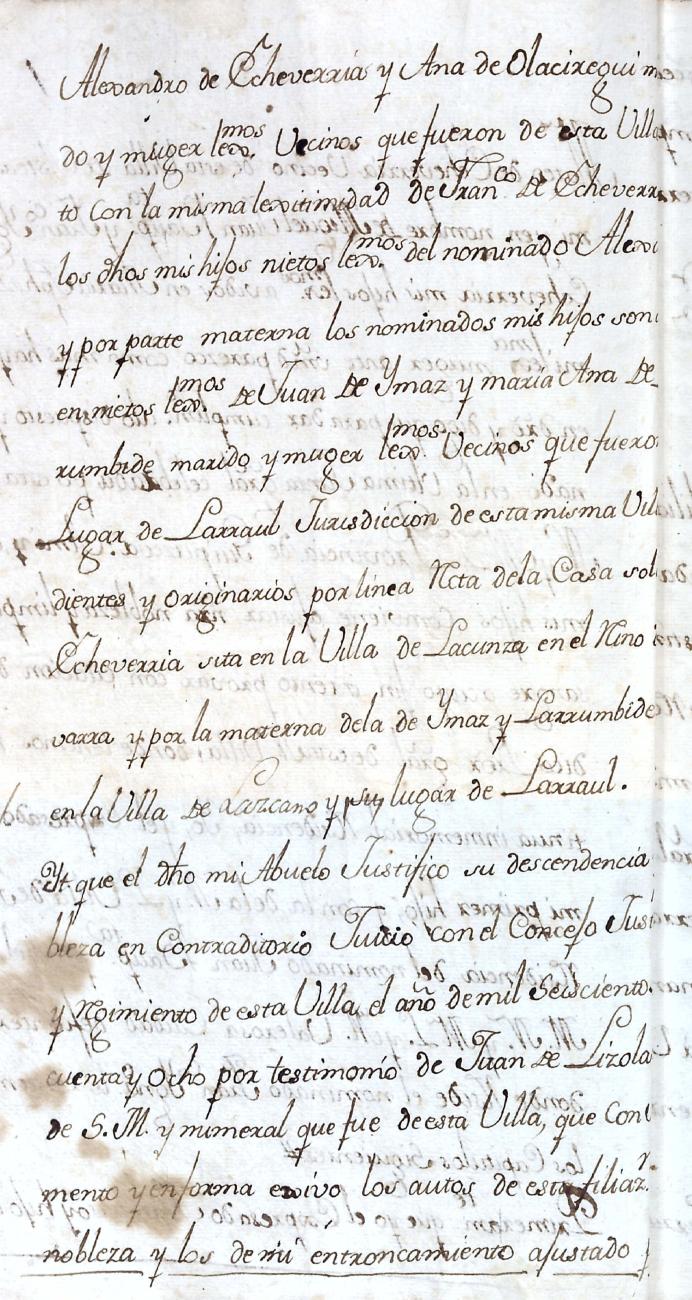 Alexandro de Echeverria y Ana de Olaciregui m
do y muger lex.mos Vecinos que fueron de esta Villa
to con la misma lexitimidad de Fran.co de Echeverr
los dhos mis hijos nietos lex.mos del nominado Alex
y por parte materna los nominados mis hijos son
en nietos lex.mos de Juan de Ymaz y maria Ana de
rumbide marido y muger lex.mos Vecinos que fuero
Lugar de Larraul Jurisdiccion de esta misma Vill
dientes y originarios por linea Rcta dela Casa sol
Echeverria sita en la Villa de Lacunza en el Rino
varra y por la materna dela de Ymaz y Larrumbide
en la Villa de Lazcano y su lugar de Larraul.
Yt. que el dho mi Abuelo Justifico su descendencia
bleza en Contraditorio Juicio con el Concejo Jus
y Rgimiento de esta Villa el año de mil Seisciento
cuenta y Ocho por testimonio de Juan de Lizola
de S. M. y numeral que fue de esta Villa, que Con
mento y en forma exivo los autos de esta filiaz.n
nobleza y los de mi entroncamiento ajustado